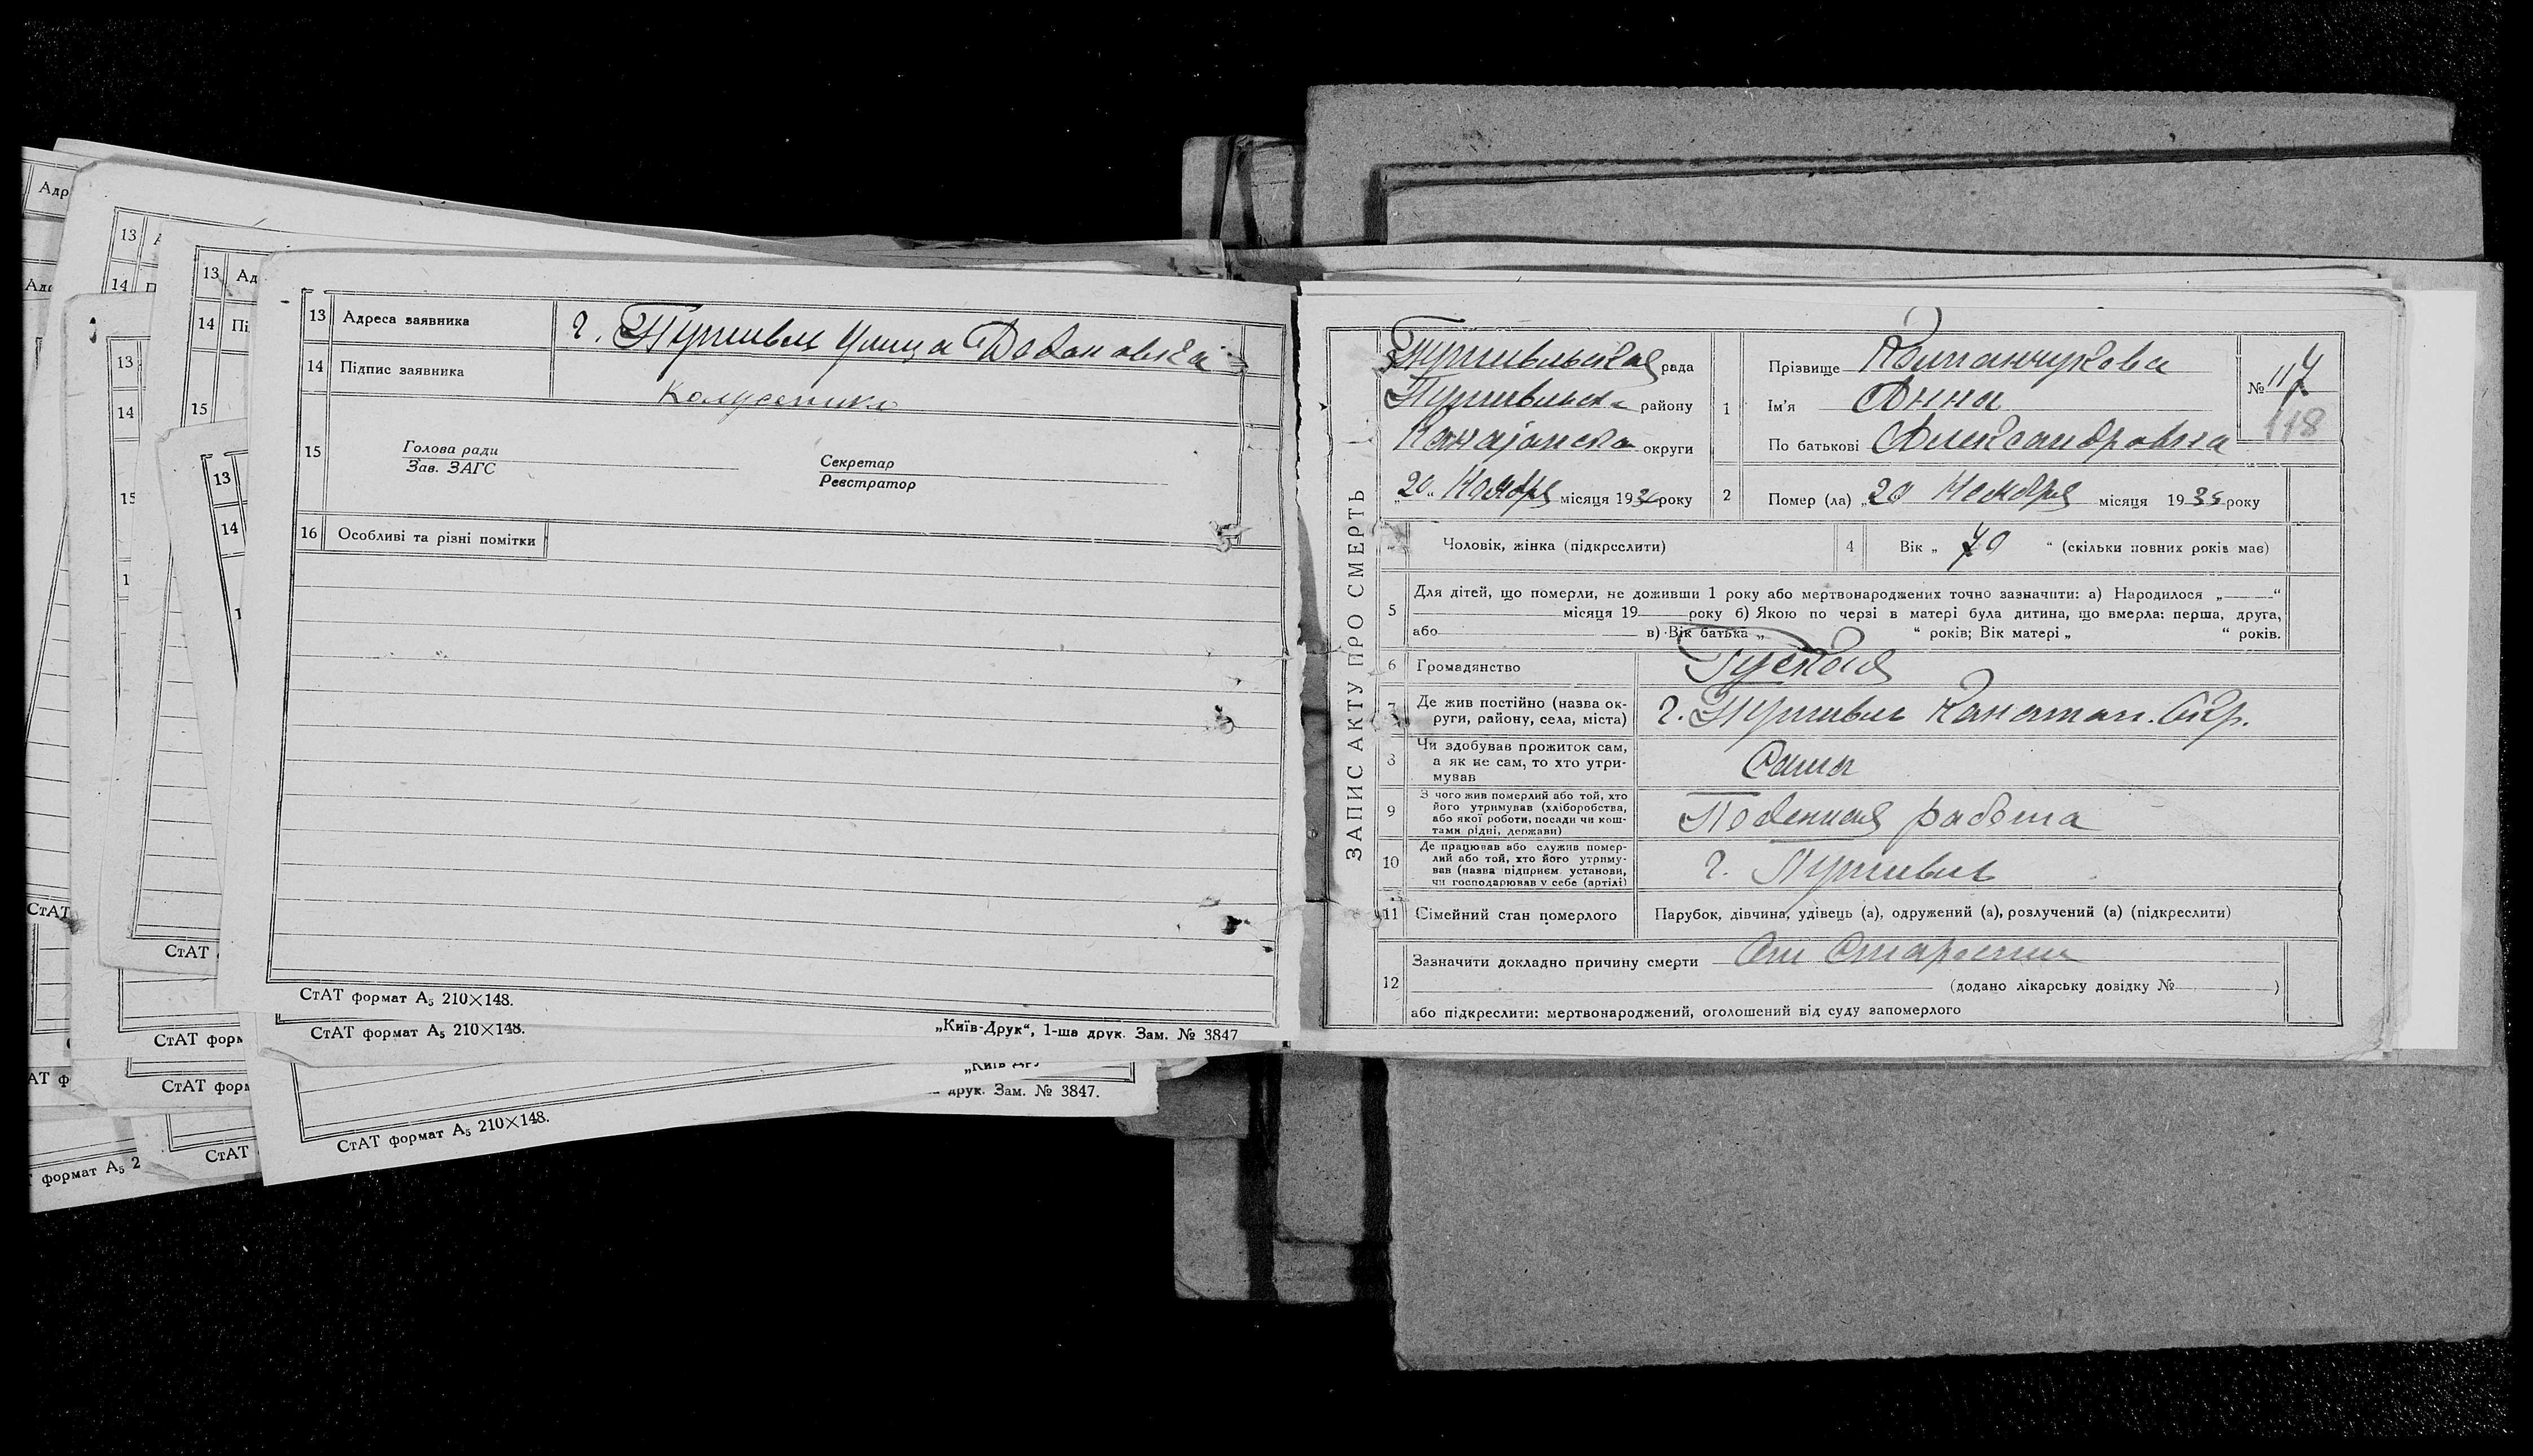 Адр
13
14
13
Ад
14
Пі
15
13
14
15
13
14
13 Адреса заявника г. Путивль улица
14 Підпис заявника
15
Голова ради
Зав. ЗАГС
Секретар
Реєстратор
16 Особливі та різні помітки
СтАТ формат А5 210×148.
СтАТ формат А5 210×148.
„Київ-Друк“, 1-ша друк. Зам. № 3847
друк. Зам. № 3847.
СтАТ формат А5 210×148.
СтАТ
СтАТ
СтАТ форм
СтАТ форм
СтАТ
формат А5 2
ЗАПИС АКТУ ПРО СМЕРТЬ
Путивльская рада
Путивльск района
округи
„20“ Ноября місяця 193 року
1
Прізвище
Ім'я Анна
По батькові Александровна
№ 117
118
2 Помер (ла) „20 Ноября місяця 193 року
Чоловік, жінка (підкреслити)
4 Вік „ 70 “ (скільки повних років має)
5 Для дітей, що померли, не доживши 1 року або мертвонароджених точно зазначити: а) Народилося „ “
місяця 19 року б) Якою по черзі в матері була дитина, що вмерла: перша, друга,
або в) Вік батька „ “ років; Вік матері „ “ років.
6 Громадянство Руская
7 Де жив постійно (назва округи, району, села, міста) г. Путивль Конотоп. Окр.
8 Чи здобував прожиток сам,
а як не сам, то хто утримував
Сама
9 З чого жив померлий або той, хто
його утримував (хліборобства,
або якої роботи, посади чи коштами рідні, держави)
Поденная работа
10 Де працював або служив померлий або той, хто його утримував (назва підприєм. установи,
чи господарював у себе (артілі)
г. Путивль
11 Сімейний стан померлого Парубок, дівчина, удівець (а), одружений (а), розлучений (а) (підкреслити)
12 Зазначити докладно причину смерти От старости
(додано лікарську довідку № )
або підкреслити: мертвонароджений, оголошений від суду запомерлого